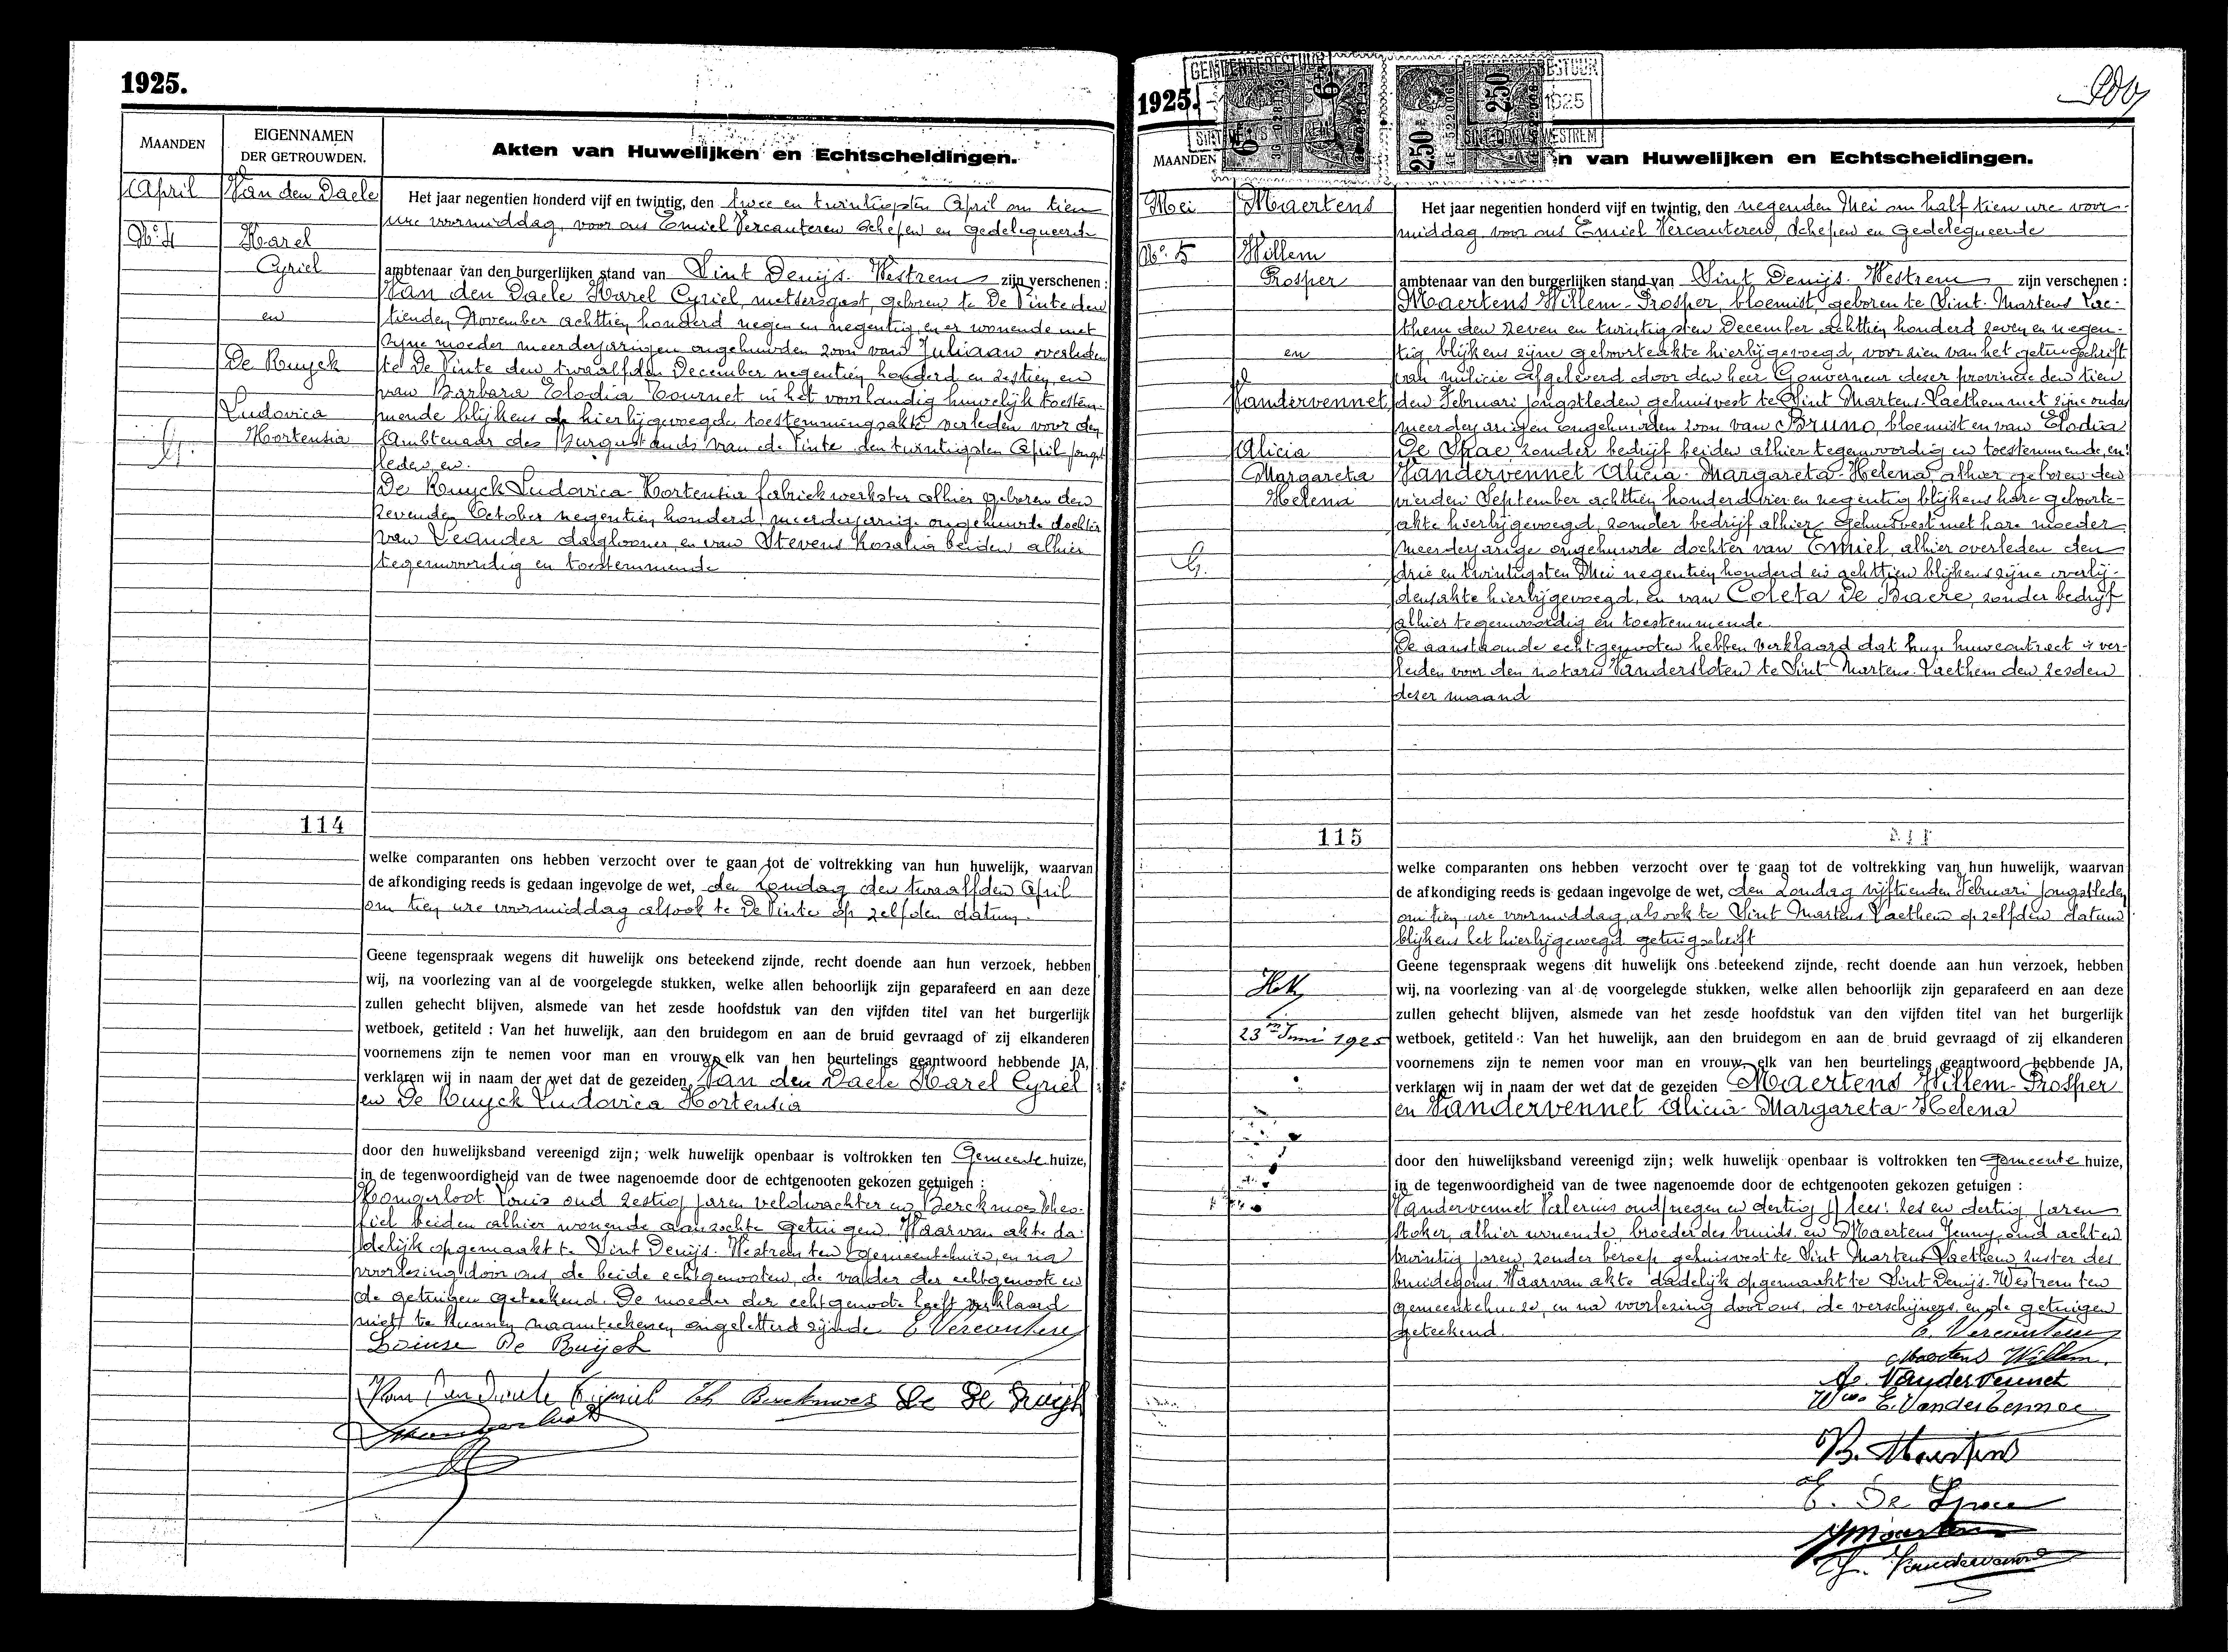 1925.
MAANDEN
EIGENNAMEN
DER GETROUWDEN.
Akten van Huwelijken en Echtscheidingen.
April
No. 4
Van den Daele
Karel
Cyriel
en
De Ruyck
Ludovica
Hortensia
Het jaar negentien honderd vijf en twintig, den twee en twintigsten April om tien
ure voormiddag, voor ons Emiel Vercauteren Schepen en Gedelegueerde
ambtenaar van den burgerlijken stand van Sint Denijs-Westrem zijn verschenen :
Van den Daele Karel Cyriel, metsersgast, geboren te De Pinte den
tienden November achttien honderd negen en negentig, en er wonende met
zijne moeder meerderjarigen ongehuwden zoon van Juliaan overleden
te De Pinte den twaalfden December negentien honderd en zestien en
van Barbara Elodia Tournet in het voorhandig huwelijk toestem-
mende blijkens de hierbijgevoegde toestemmingsakte verleden voor den
Ambtenaar des Burgerstands van de Pinte den twintigsten April jongst
leden, en.
De Ruyck Ludovica-Hortensia fabriekwerkster alhier geboren den
zevenden October negentien honderd, meerderjarige ongehuwde dochter
van Leander daglooner, en van Stevens Rosalia beiden alhier
tegenwoordig en toestemmende
114
welke comparanten ons hebben verzocht over te gaan tot de voltrekking van hun huwelijk, waarvan
de afkondiging reeds is gedaan ingevolge de wet, den Zondag den twaalfden April
om tien ure voormiddag alsook te De Pinte op zelfden datum.
Geene tegenspraak wegens dit huwelijk ons beteekend zijnde, recht doende aan hun verzoek, hebben
wij, na voorlezing van al de voorgelegde stukken, welke allen behoorlijk zijn geparafeerd en aan deze
zullen gehecht blijven, alsmede van het zesde hoofdstuk van den vijfden titel van het burgerlijk
wetboek, getiteld : Van het huwelijk, aan den bruidegom en aan de bruid gevraagd of zij elkanderen
voornemens zijn te nemen voor man en vrouw, elk van hen beurtelings geantwoord hebbende JA,
verklaren wij in naam der wet dat de gezeiden Van den Daele Karel Cyriel
en De Ruyck Ludovica Hortensia
door den huwelijksband vereenigd zijn; welk huwelijk openbaar is voltrokken ten Gemeente huize,
in de tegenwoordigheid van de twee nagenoemde door de echtgenooten gekozen getuigen :
Hongerloot Louis oud zestig jaren veldwachter en Berckmoes Theo-
fiel beiden alhier wonende aanzochte getuigen. Waarvan akte da-
delijk opgemaakt te Sint Denijs-Westrem ten gemeentehuize, en na
voorlezing door ons, de beide echtgenooten, de vader der echtgenoote en
de getuigen geteekend. De moeder der echtgenoote heeft verklaard
niet te kunnen naamteekenen, ongeletterd zijnde. E Vercauteren
De Ruijck
Van den Daele Th Berckmoes De Ruijck
1925.
GEMEENTEBESTUUR
SINT-DENIJS-WESTREM
250
1925
MAANDEN
n van Huwelijken en Echtscheidingen.
Mei
No. 5
Maertens
Willem
Prosper
en
Vandervennet
Alicia
Margareta
Helena
Het jaar negentien honderd vijf en twintig, den negenden Mei om half tien ure voor-
middag, voor ons Emiel Vercauteren, Schepen en Gedelegueerde
ambtenaar van den burgerlijken stand van Sint Denijs-Westrem zijn verschenen :
Maertens Willem-Prosper, bloemist, geboren te Sint-Martens Lae-
them den zeven en twintigsten December achttien honderd zeven en negen-
tig, blijkens zijne geboorteakte hierbijgevoegd, voorzien van het getuigschrift
van milicie afgeleverd door den heer Gouverneur dezer provincie den tien
den Februari jongstleden, gehuisvest te Sint Martens-Laethem met zijne ouders
meerderjarigen ongehuwden zoon van Bruno, bloemist en van Elodia
De Spae, zonder bedrijf beiden alhier tegenwoordig en toestemmende, en:
Vandervennet Alicia-Margareta-Helena, alhier geboren den
vierden September achttien honderd vier en negentig blijkens hare geboorte-
akte hierbijgevoegd, zonder bedrijf alhier gehuisvest met hare moeder
meerderjarige ongehuwde dochter van Emiel, alhier overleden den
drie en twintigsten Mei negentien honderd en achttien blijkens zijne overlij-
densakte hierbijgevoegd, en van Coleta De Baere, zonder bedrijf
alhier tegenwoordig en toestemmende.
De aanstaande echtgenooten hebben verklaard dat hun huwcontract is ver-
leden voor den notaris Vandersloten te Sint-Martens-Laethem den zesden
dezer maand
115
welke comparanten ons hebben verzocht over te gaan tot de voltrekking van hun huwelijk, waarvan
de afkondiging reeds is gedaan ingevolge de wet, den Zondag vijftienden Februari jongstleden
om tien ure voormiddag, alsook te Sint Martens Laethem op zelfden datum
blijkens het hierbijgevoegd getuigschrift
23n Juni 1925
Geene tegenspraak wegens dit huwelijk ons beteekend zijnde, recht doende aan hun verzoek, hebben
wij, na voorlezing van al de voorgelegde stukken, welke allen behoorlijk zijn geparafeerd en aan deze
zullen gehecht blijven, alsmede van het zesde hoofdstuk van den vijfden titel van het burgerlijk
wetboek, getiteld : Van het huwelijk, aan den bruidegom en aan de bruid gevraagd of zij elkanderen
voornemens zijn te nemen voor man en vrouw, elk van hen beurtelings geantwoord hebbende JA,
verklaren wij in naam der wet dat de gezeiden Maertens Willem-Prosper
en Vandervennet Alicia-Margareta-Helena
door den huwelijksband vereenigd zijn; welk huwelijk openbaar is voltrokken ten Gemeente huize,
in de tegenwoordigheid van de twee nagenoemde door de echtgenooten gekozen getuigen :
Vandervennet Valerius oud negen en dertig lees: zes en dertig jaren
stoker, alhier wonende, broeder des bruids en Maertens Jenny, oud acht en
twintig jaren, zonder beroep, gehuisvest te Sint Martens Laethem, zuster des
bruidegoms. Waarvan akte dadelijk opgemaakt te Sint Denijs-Westrem ten
gemeentehuize, en na voorlezing door ons, de verschijners en de getuigen
geteekend.
E. Vercauteren
Maertens Willem.
A. Vandervennet
Wwe E. Vandervennet
B. Maertens
E. De Spae
J Maertens
Vandervennet